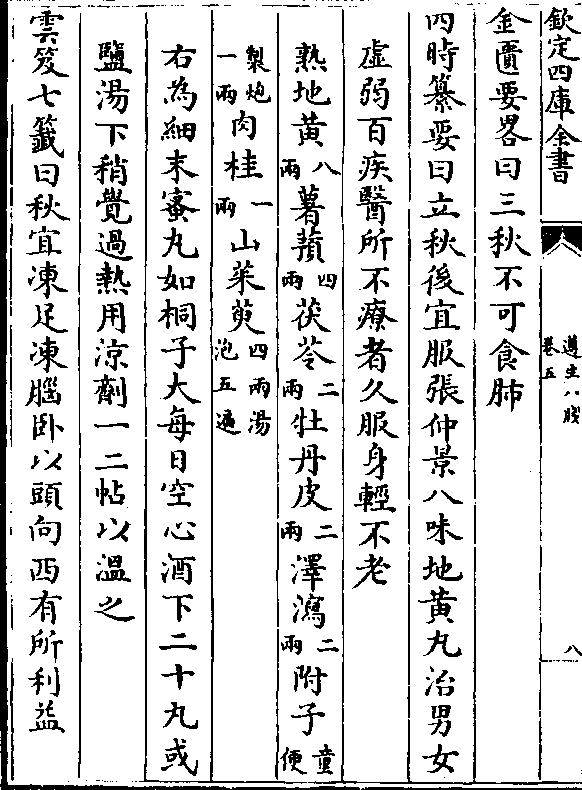 欽定四庫全書
遵生八牋
卷五
八
金匱要畧曰三秋不可食肺
四時纂要曰立秋後宜服張仲景八味地黄丸治男女
虚弱百疾醫所不療者久服身輕不老
熟地黄八兩薯蕷四兩茯苓二兩牡丹皮二兩澤瀉二兩附子童便
製炮一兩肉桂一兩山茱萸四兩湯泡五遍
右為細末蜜丸如桐子大每日空心酒下二十丸或
鹽湯下稍覺過熱用涼劑一二帖以溫之
雲笈七籤曰秋宜凍足凍腦卧以頭向西有所利益